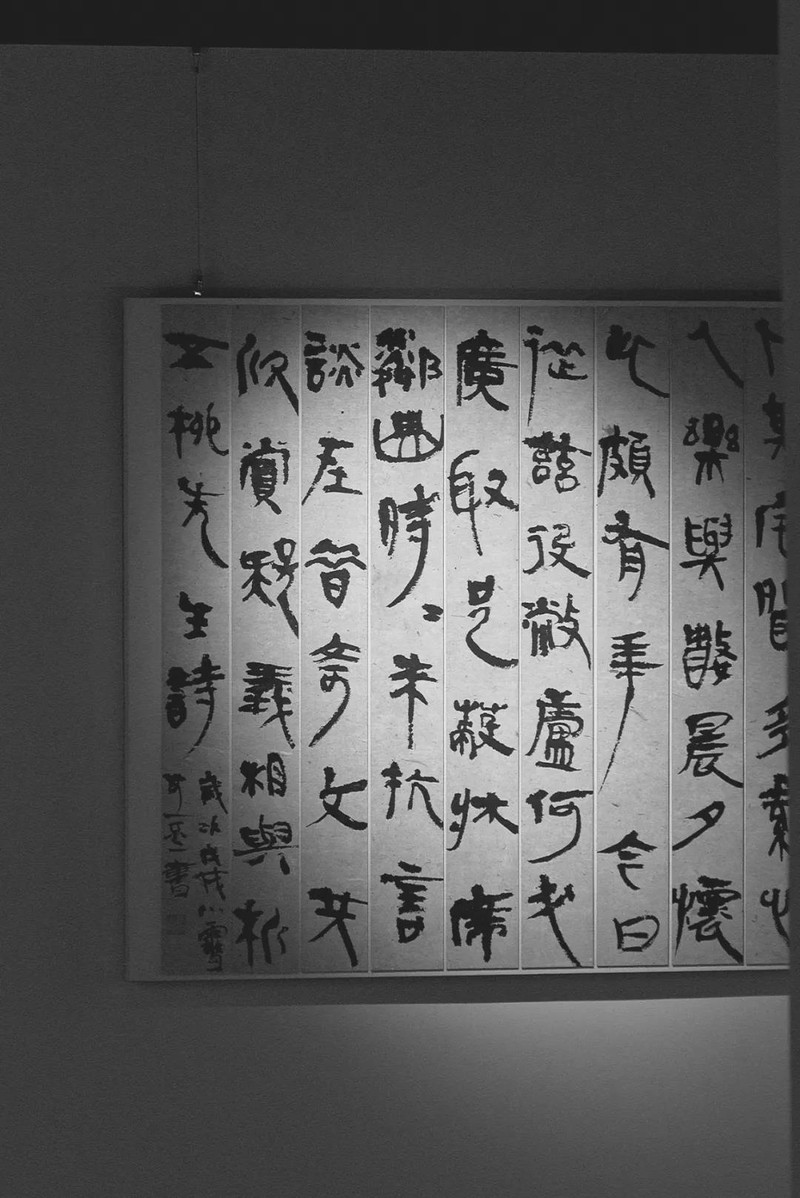 卜其宅聞多素心
人樂與數晨夕懷
此頗有年今日
從茲役敝廬何必
廣取足蔽牀席
鄰曲時〻來抗言
談在昔奇文共
欣賞疑義相與析
五柳先生詩
歲次戊戌小雪
書